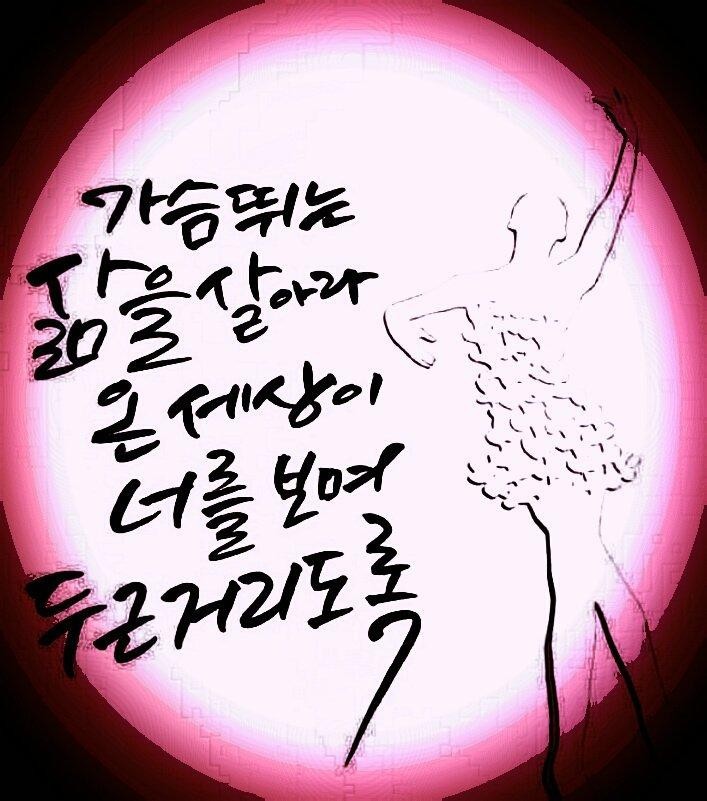 가슴뛰는
삶을 살아라
온 세상이
너를 보며
두근거리도록